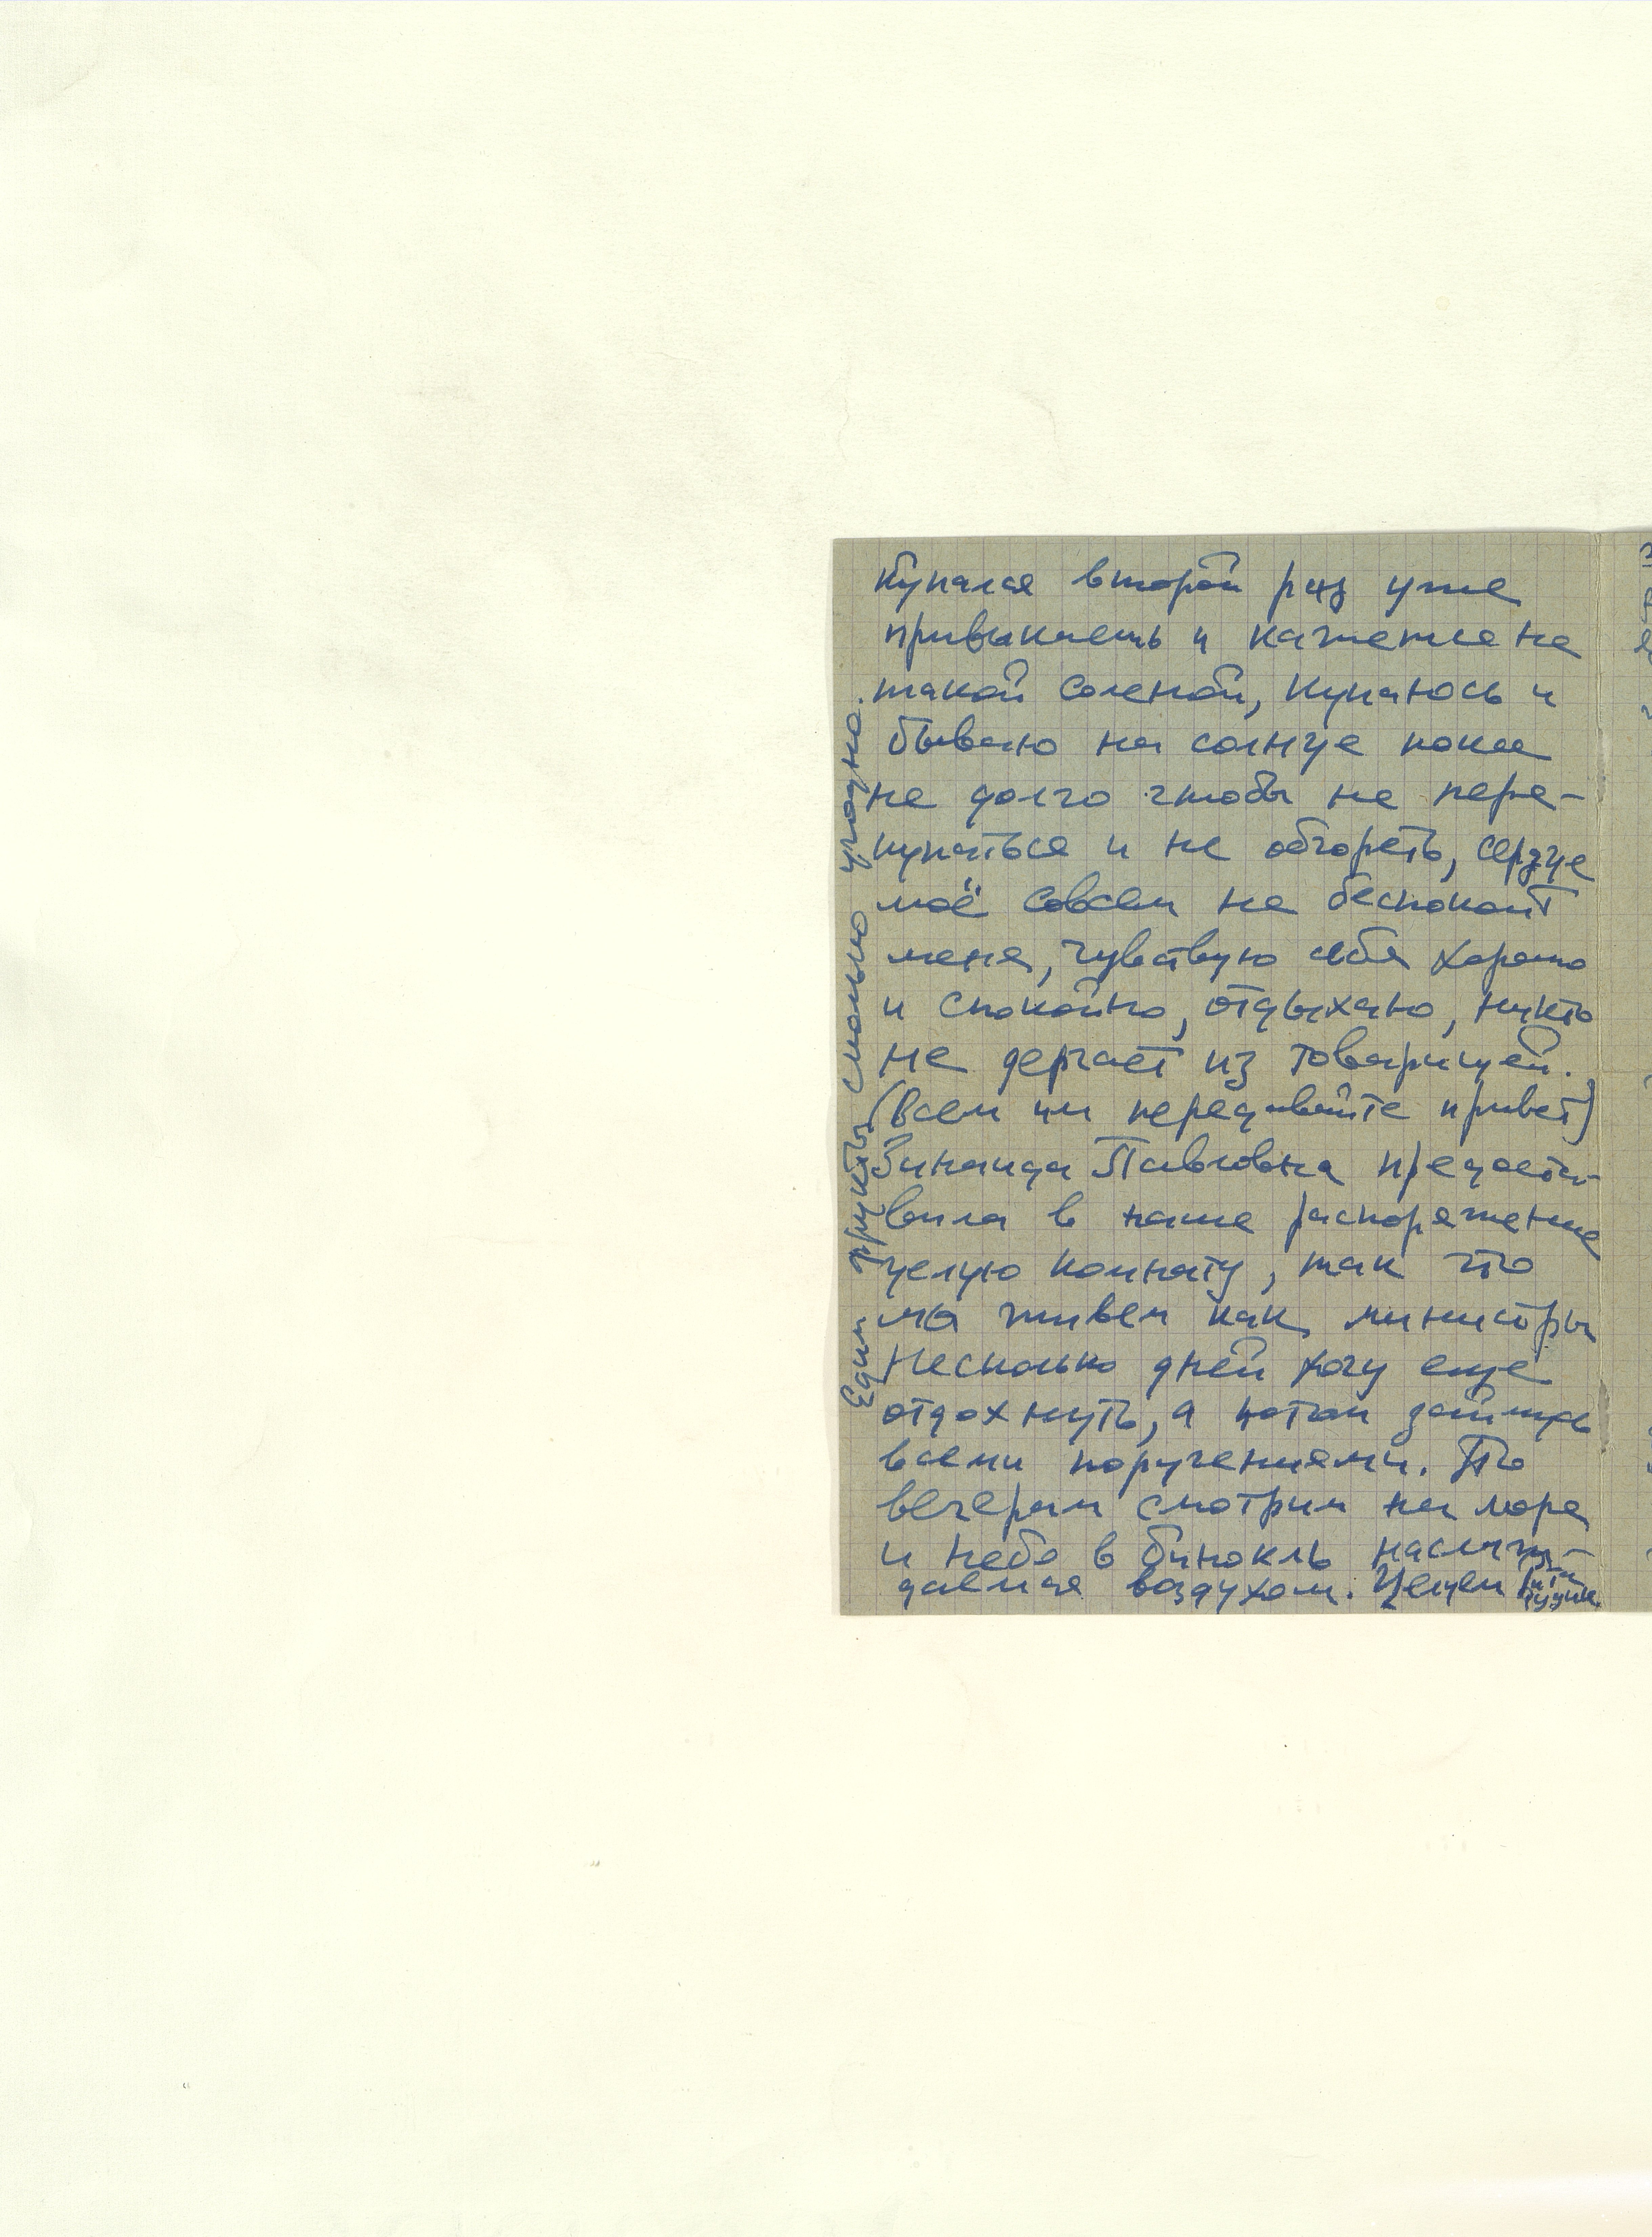 Купался второй раз уже
привыкаешь и кажется не
такой соленой, купаюсь и
бываю на солнце пока
не долго чтобы не пере-
купаться и не обгореть, сердце
моё совсем не беспокоит
меня, чувствую себя хорошо
и спокойно, отдыхаю, никто
не дергает из товарищей.
(Всем им передавайте привет)
Зинаида Павловна предоста-
вила в наше распоряжение
целую комнату, так что
мы живем как министры
Несколько дней хочу еще
отдохнуть, а потом займусь
всеми поручениями. По
вечерам смотрим на море
и небо в бинокль наслаж-
даемся воздухом. Целуем
Едим фрукты сколько угодно.